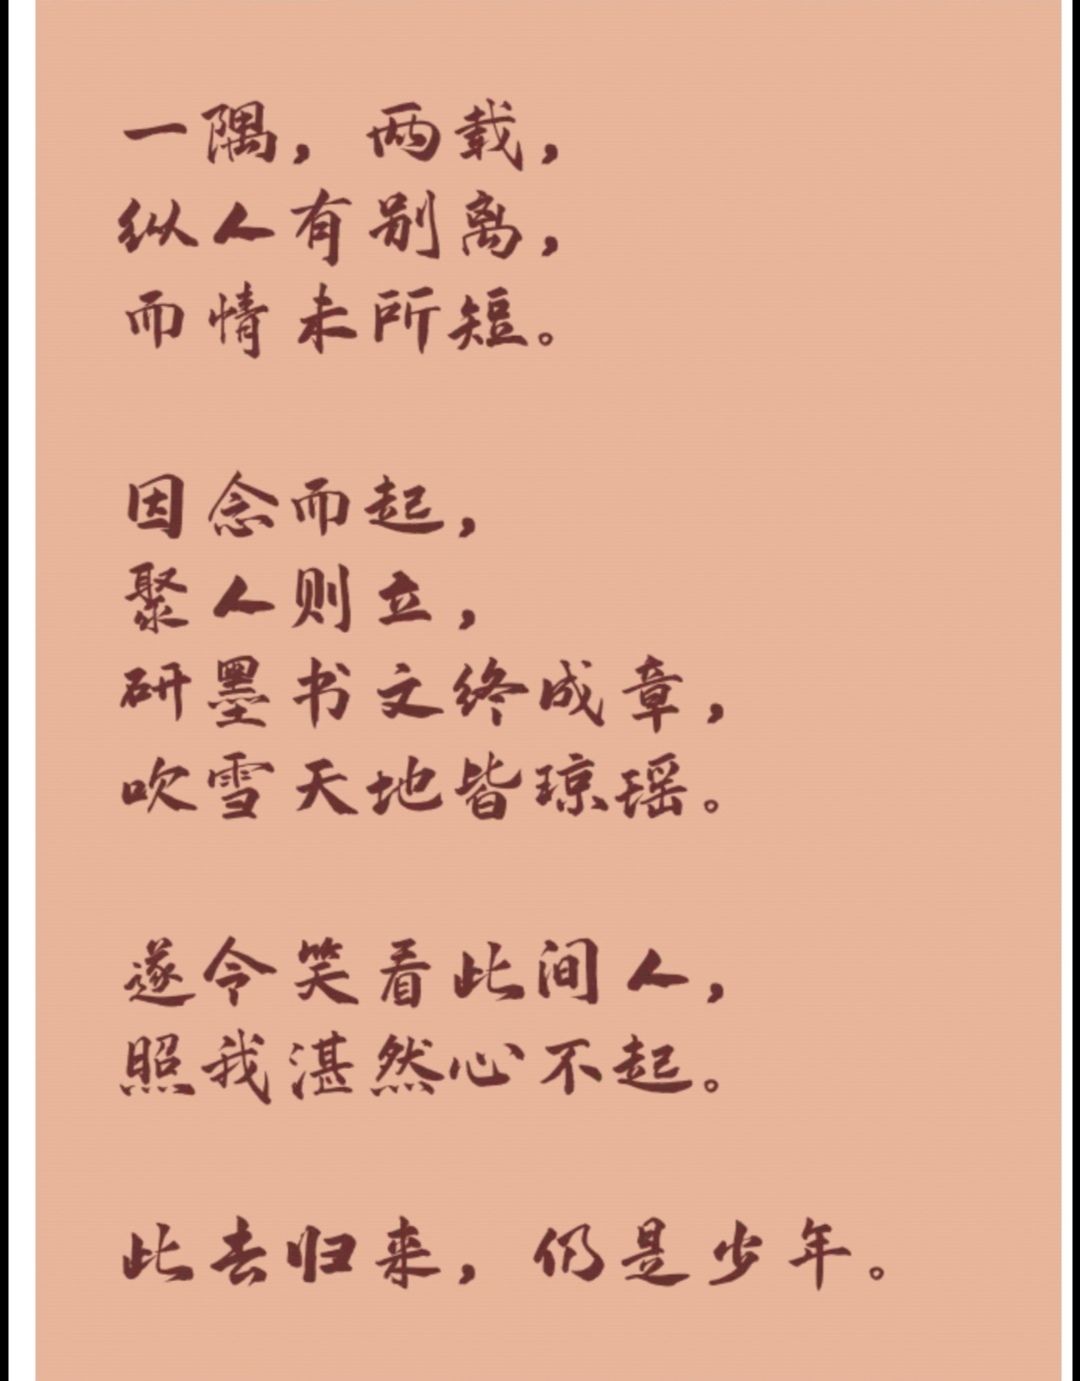 一隅，两载，
纵人有别离，
而情未所短。
因念而起，
聚人则立，
研墨书文终成章，
吹雪天地皆琼瑶。
遂令笑看此间人，
照我湛然心不起。
此去归来，仍是少年。